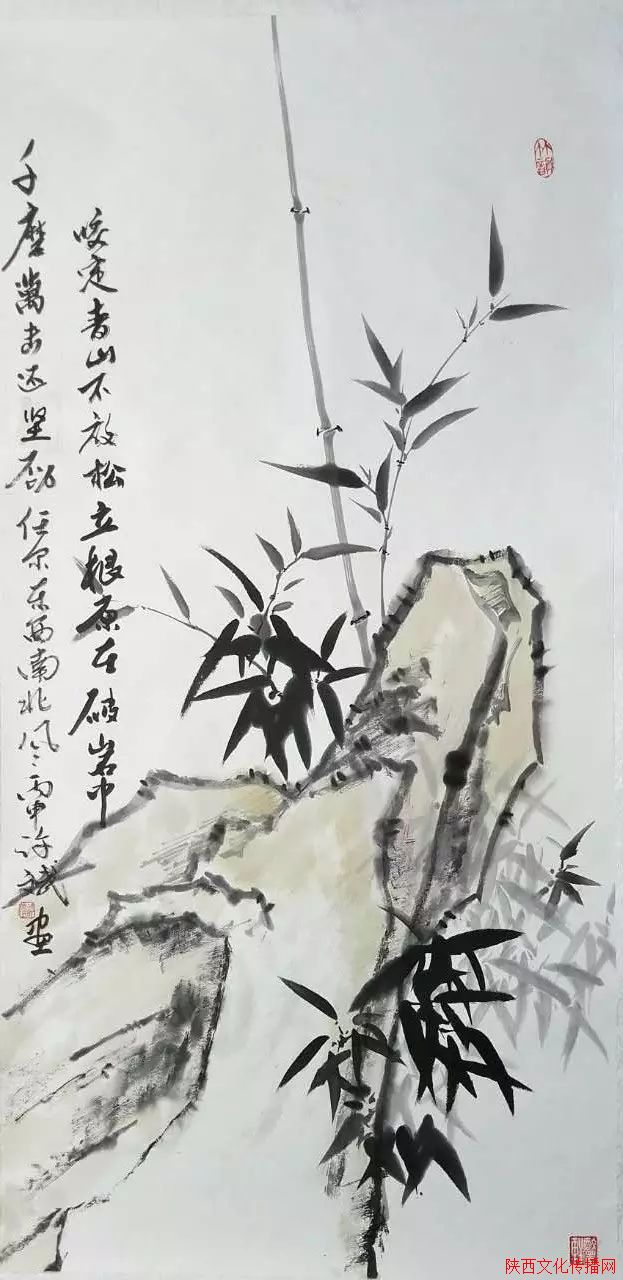 竹韻
咬定青山不放松立根原在破岩中
千磨萬击还坚劲任尔东西南北风丙申许斌画
陕西文化传播网